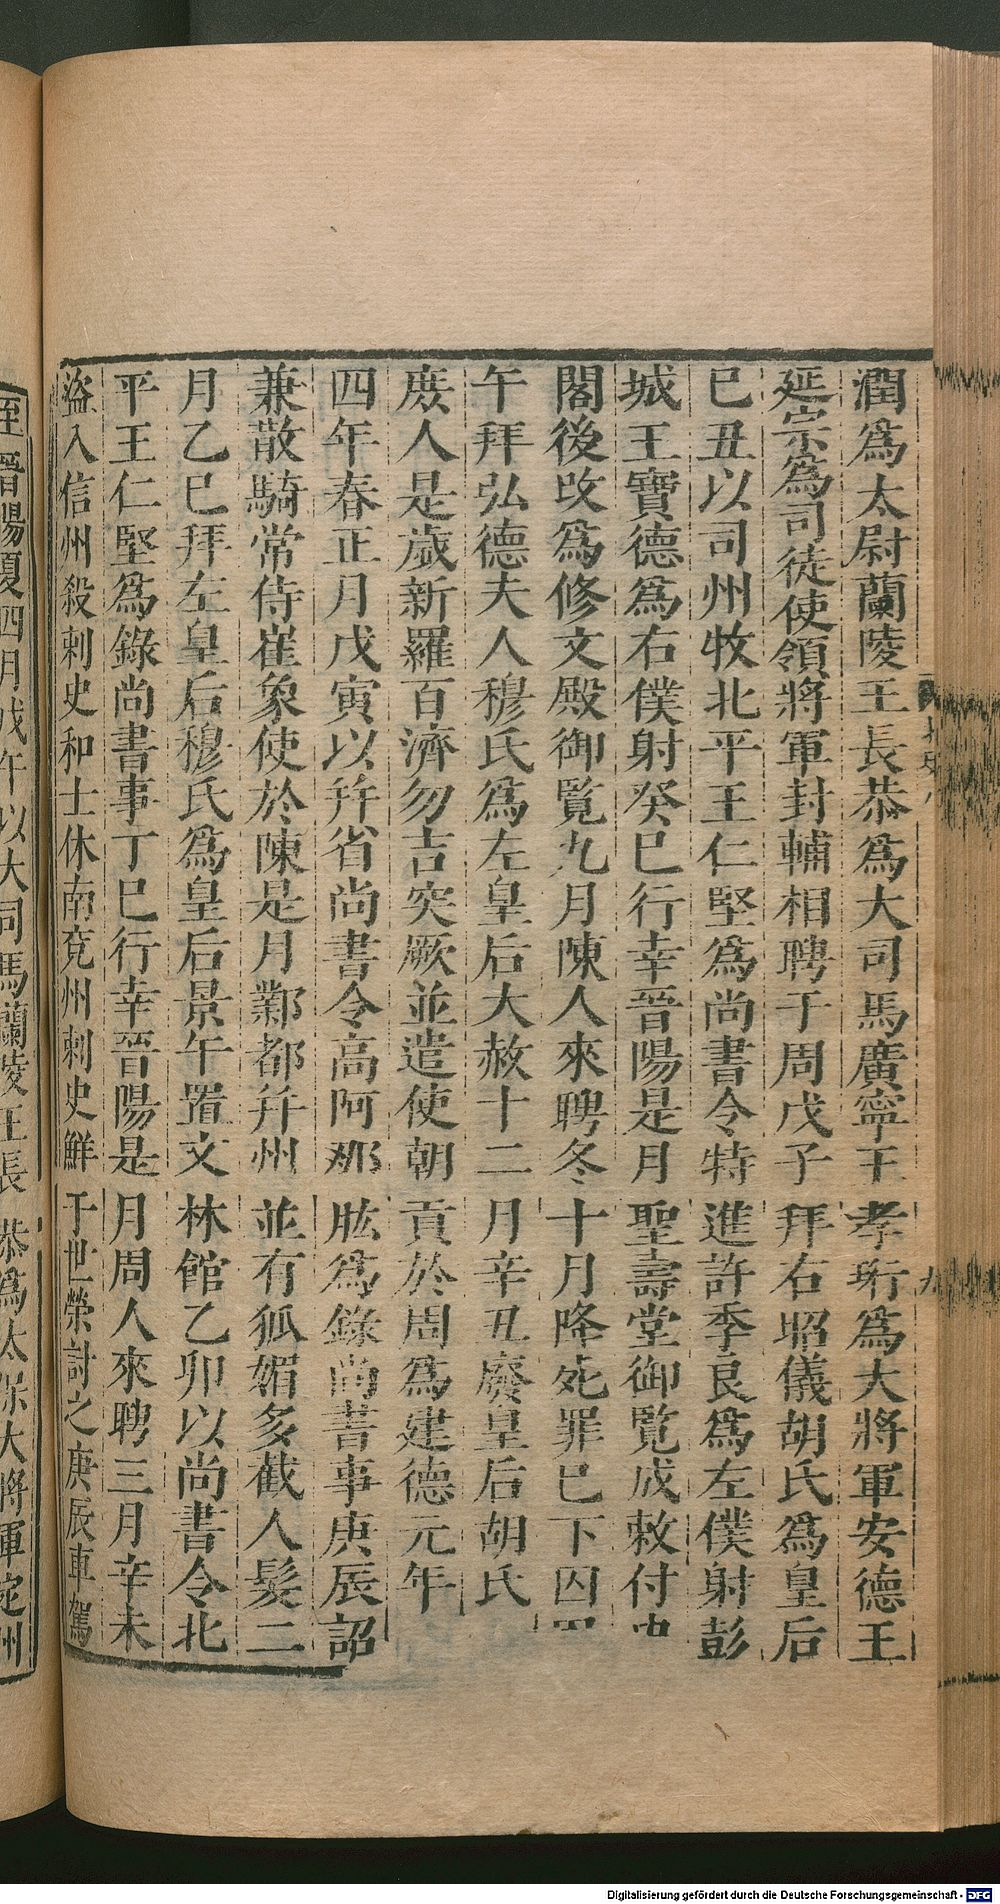 潤爲太尉蘭陵王長恭爲大司馬廣寧王孝珩爲大將軍安德王
延宗爲司徒使領將軍封輔相聘于周戊子拜右昭儀胡氏爲皇后
巳丑以司州牧北平王仁堅爲尚書令特進許季良爲左僕射彭
城王寶德爲右僕射癸巳行幸晉陽是月聖壽堂御覽成敕付史
閣後改爲修文殿御覽九月陳人來聘冬十月降死罪巳下囚
午拜弘德夫人穆氏爲左皇后大赦十二月辛丑廢皇后胡氏
庶人是歲新羅百濟勿吉突厥並遣使朝貢於周爲建德元年
四年春正月戊寅以幷省尚書令高阿那肱爲錄尚書事庚辰詔
兼散騎常侍崔象使於陳是月鄴都幷州並有狐媚多截人髮二
月乙巳拜左皇后穆氏爲皇后景午置文林館乙卯以尚書令北
平王仁堅爲錄尚書事丁巳行幸晉陽是月周人來聘三月辛未
盜入信州殺刺史和士休南兗州刺史鮮于世榮討之庚辰車駕
至晉陽夏四月戊午以大司馬蘭陵王長恭爲太保大將軍定州
北史八
九
Digitalisierung gefördert durch die Deutsche Forschungsgemeinschaft - DFG